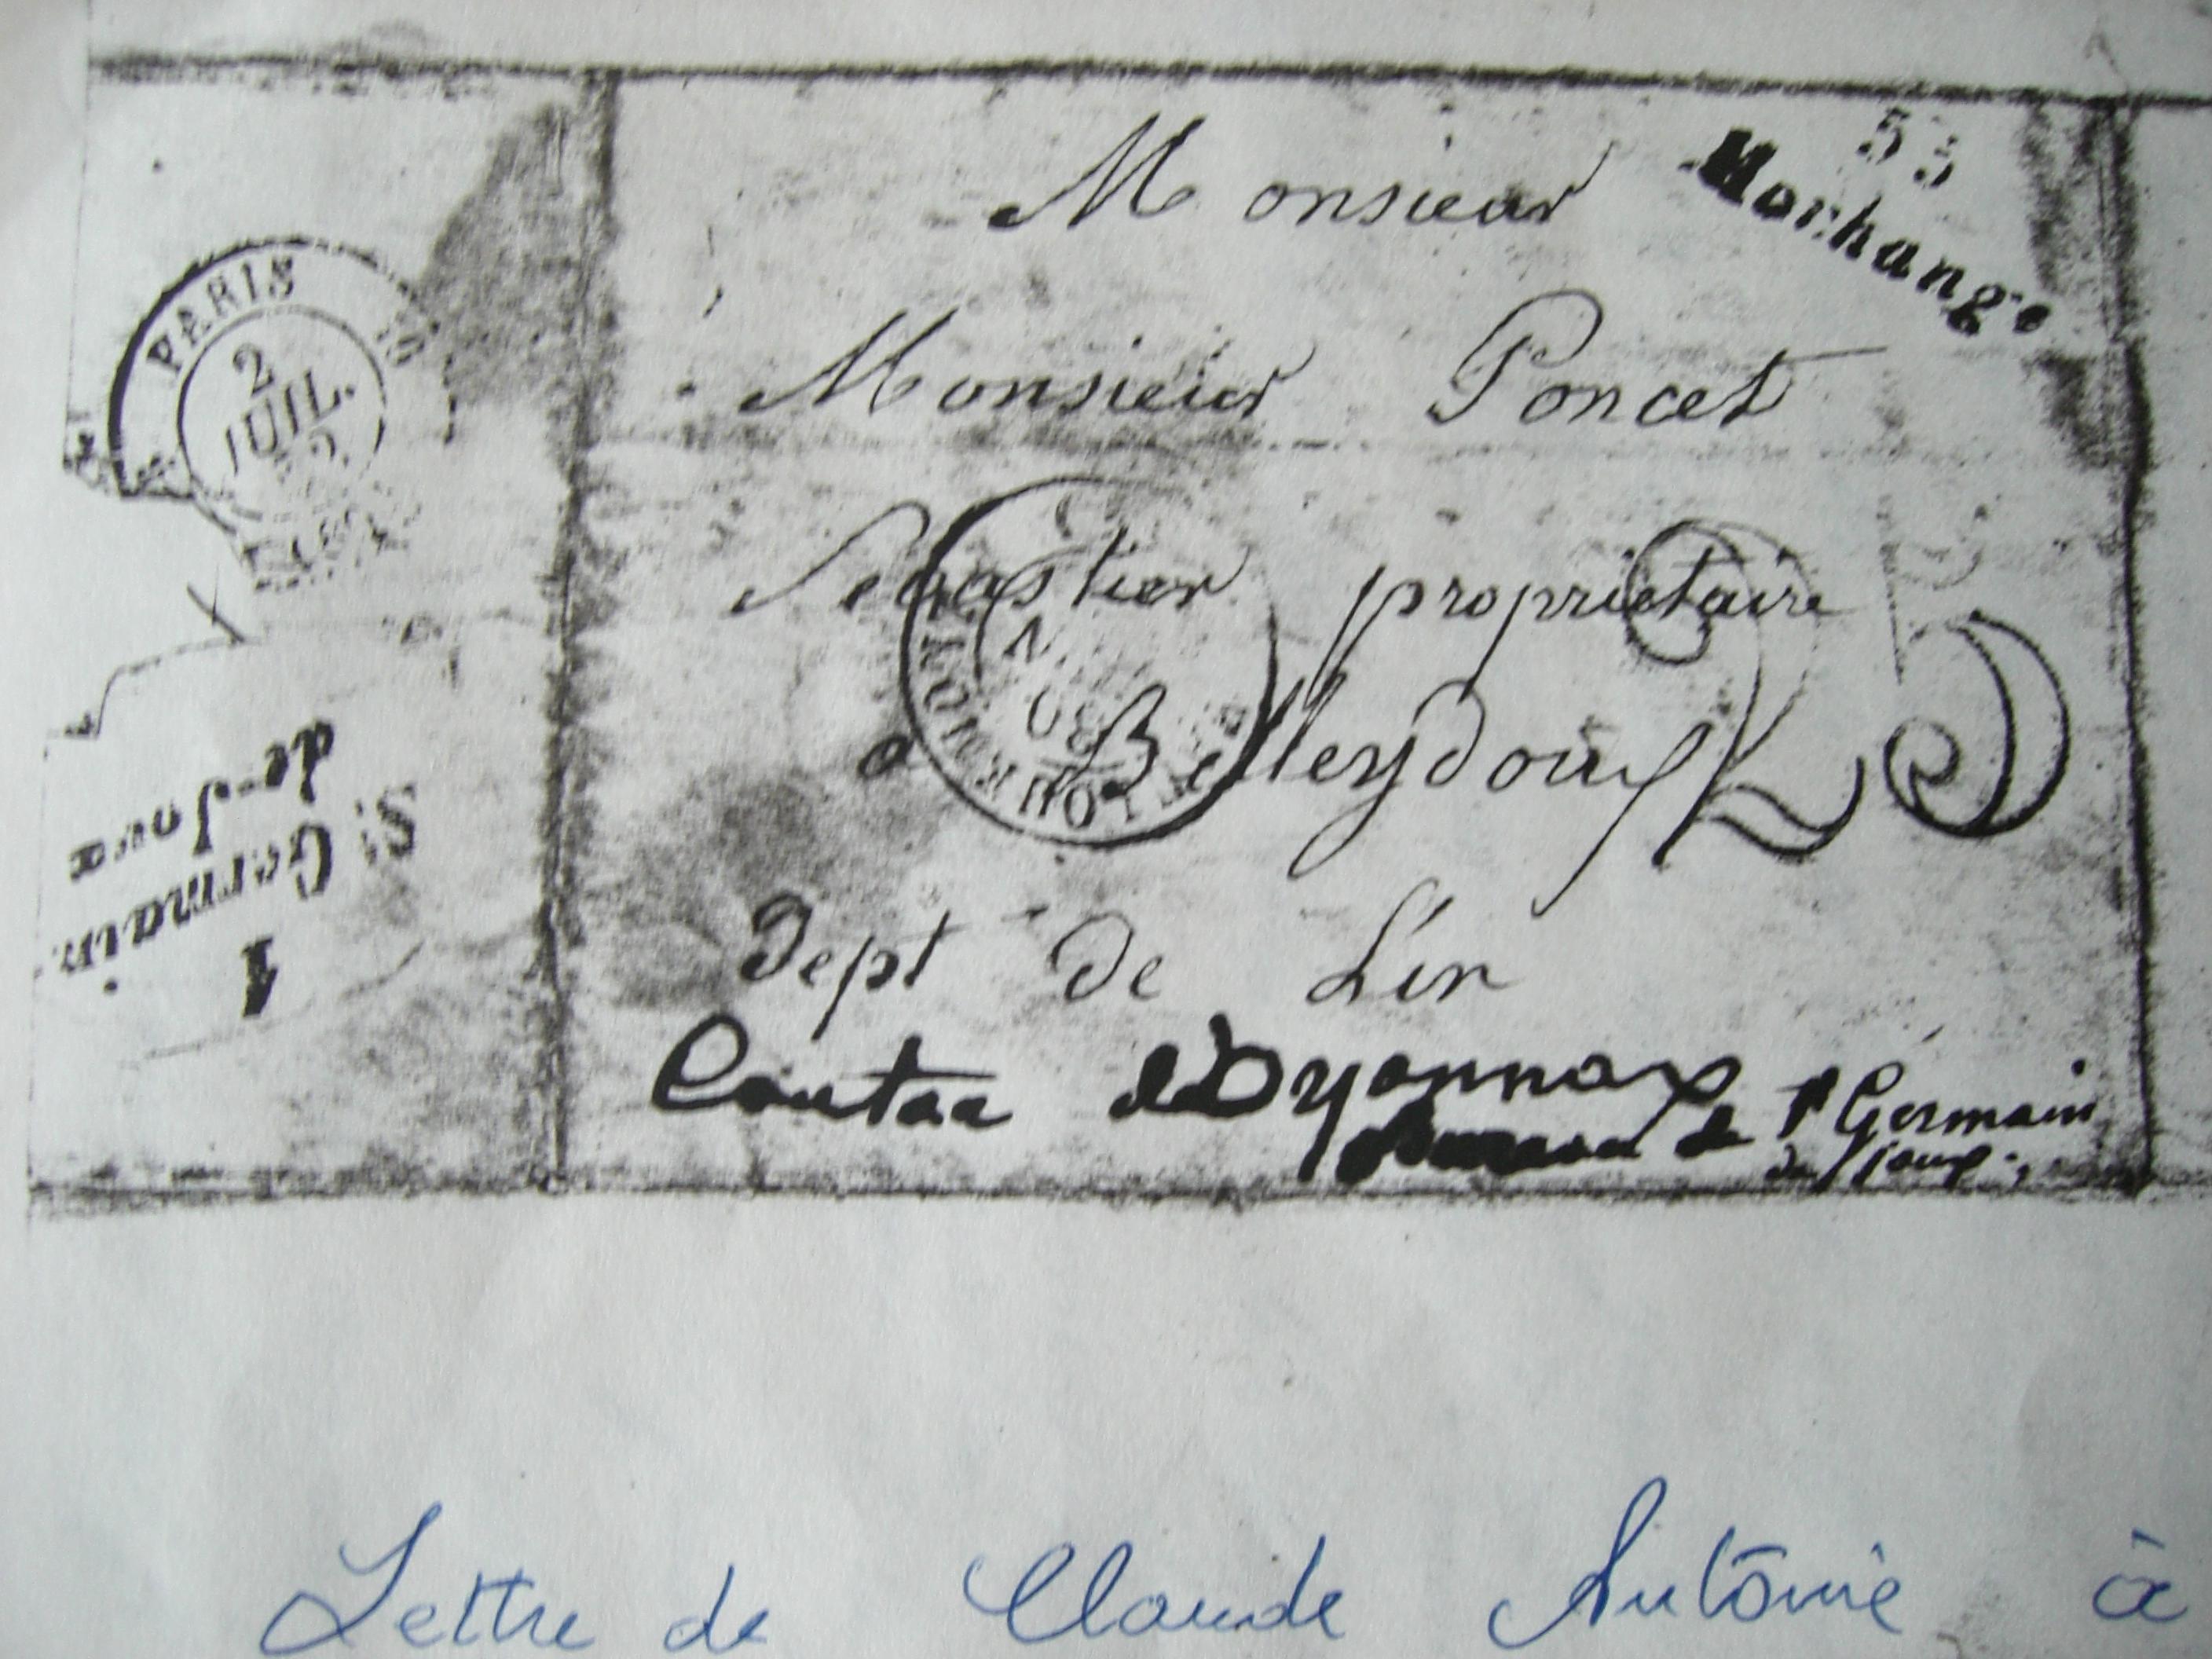 53
Morhange
Monsieur
Monsieur Poncet
PARIS
2
JUIL.
propriétaire
a Belleydoux
25
Dept De Lin
St Germain
de-Joux
1
d'Oyonnax
de St Germain
de Joux
Lettre de Claude Antoine à